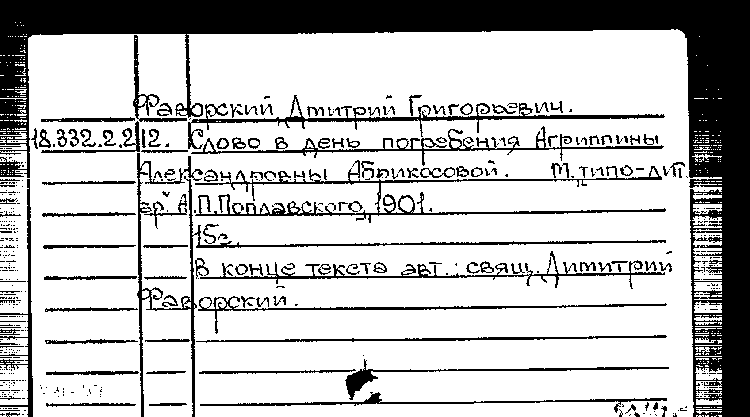 Фаворский, Дмитрий Григорьевич.
18.332.2.212. Слово в день погребения Агриппины
Александровны Абрикосовой. М., типо-лит.
А.П.Поплавского, 1901.
15с.
В конце текста авт.: свящ. Димитрий
Фаворский.